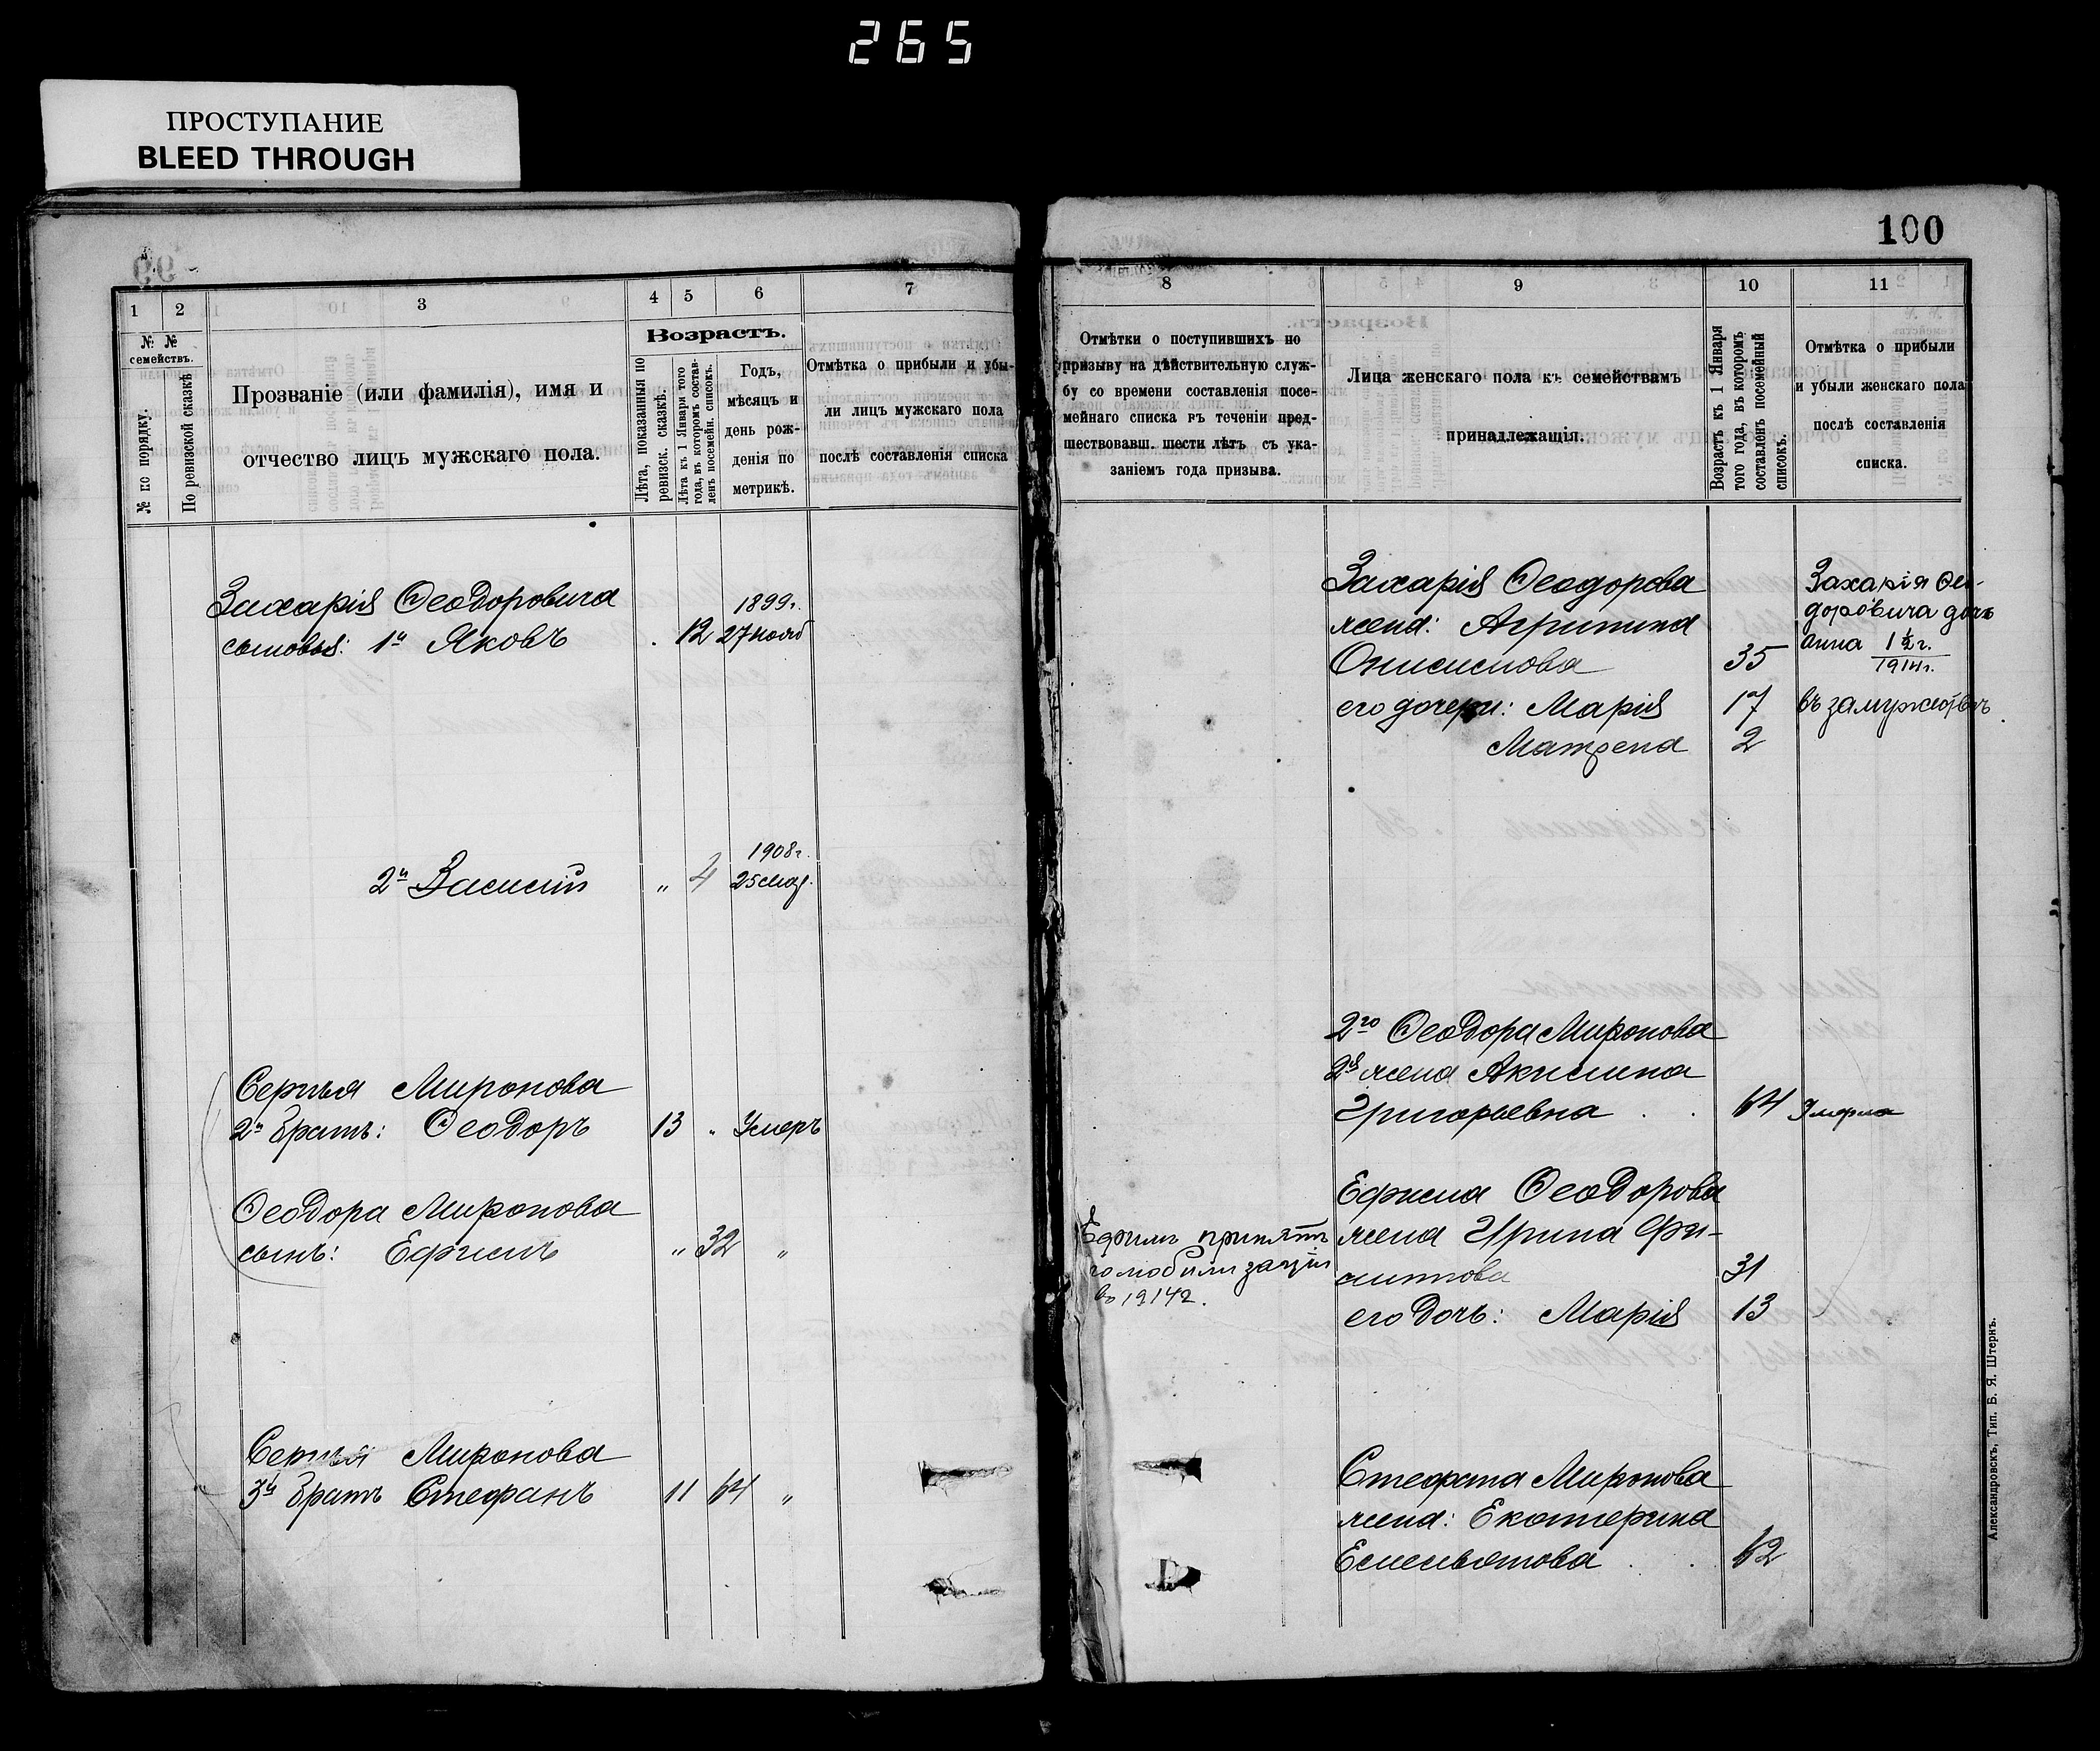 265
ПРОСТУПАНИЕ
BLEED THROUGH
100
1 2 3 4 5 6 7
№ № семействъ.
№ по порядку.
По ревизской сказкѣ
Прозваніе (или фамилія), имя и
отчество лицъ мужскаго пола.
Возрастъ.
Лѣта, показанныя по
ревизск. сказкѣ.
Лѣта къ 1 Января того
года, въ которомъ состав-
ленъ посемейн. списокъ.
Годъ,
мѣсяцъ и
день рож-
денія по
метрикѣ.
Отмѣтка о прибыли и убы-
ли лицъ мужскаго пола
послѣ составленія списка
Захарія Ѳеодоровича 1899г.
сыновья: 1й Яковъ 12 27 нояб
1908г.
2й Василій „ 4 25 мар.
Сергѣя Миронова
2й братъ: Ѳеодоръ 13 „ Умеръ
Ѳеодора Миронова
сынъ: Ефимъ „ 32 „
Сергѣя Миронова
3й братъ Стефанъ 11 64 „
8 9 10 11
Отмѣтки о поступившихъ по
призыву на дѣйствительную служ-
бу со времени составленія посе-
мейнаго списка въ теченіи пред-
шествовавш. шести лѣтъ съ ука-
заніемъ года призыва.
Лица женскаго пола къ семействамъ
принадлежащія.
Возрастъ къ 1 Января
того года, въ которомъ
составленъ посемейный
списокъ.
Отмѣтка о прибыли
и убыли женскаго пола
послѣ составленія
списка.
Захарія Ѳеодорова
жена: Агрипина
Онисимова 35
его дочери: Марія 17 въ замужествѣ
Матрена 2
Захарія Ѳео-
доровича дочь
Анна 1½ г.
1914г.
2го Ѳеодора Миронова
2я жена Акилина
Григорьевна 64 Умерла
Ефима Ѳеодорова
жена Ирина Фи-
липпова 31
его дочь: Марія 13
Ефимъ принятъ
по мобилизаціи
въ 1914г.
Стефана Миронова
жена: Екатерина
Емельянова 62
Александровскъ, Тип. Б. Я. Штернъ.